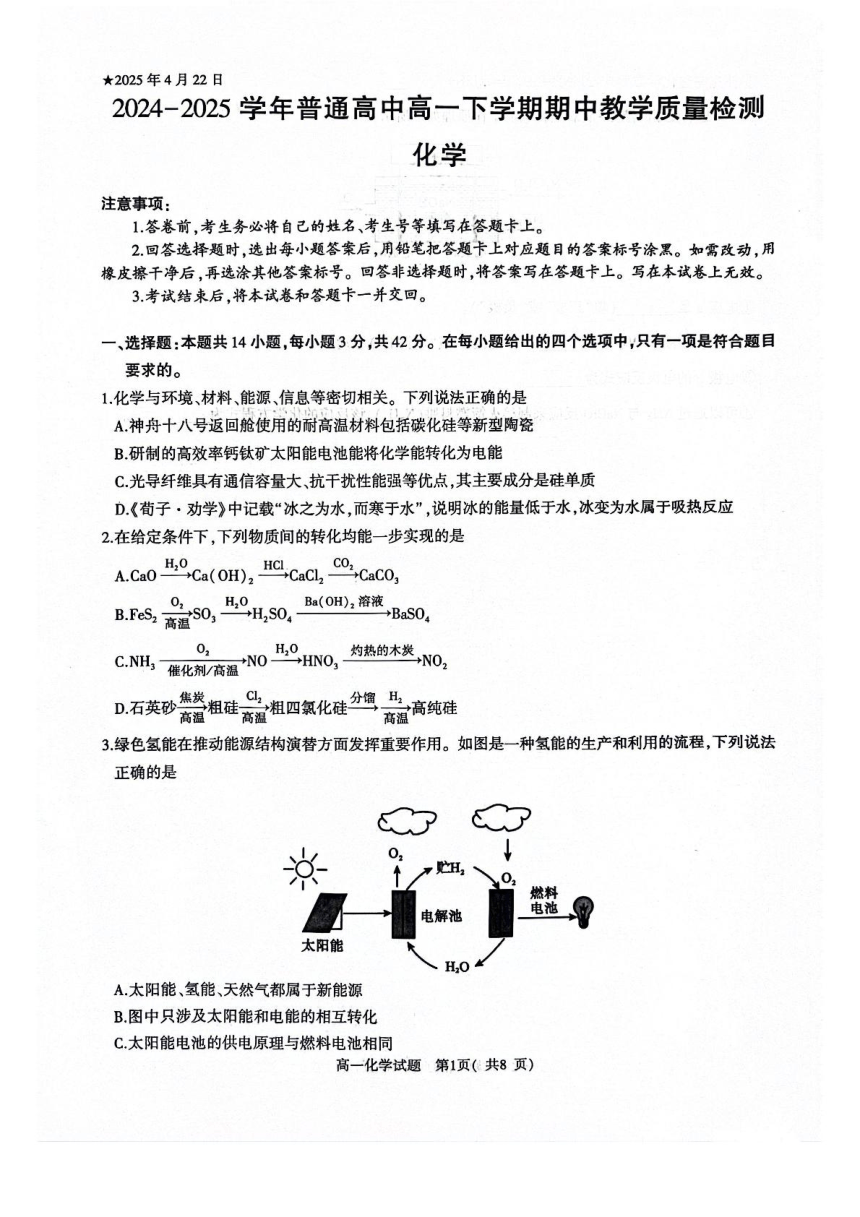 ★2025 年 4 月 22 日
2024-2025 学年普通高中高一下学期期中教学质量检测
化学
注意事项:
1.答卷前,考生务必将自己的姓名、考生号等填写在答题卡上。
2.回答选择题时,选出每小题答案后,用铅笔把答题卡上对应题目的答案标号涂黑。如需改动,用
橡皮擦干净后,再选涂其他答案标号。回答非选择题时,将答案写在答题卡上。写在本试卷上无效。
3.考试结束后,将本试卷和答题卡一并交回。
一、选择题:本题共 14 小题,每小题 3 分,共 42 分。在每小题给出的四个选项中,只有一项是符合题目
要求的。
1.化学与环境、材料、能源、信息等密切相关。下列说法正确的是
A.神舟十八号返回舱使用的耐高温材料包括碳化硅等新型陶瓷
B.研制的高效率钙钛矿太阳能电池能将化学能转化为电能
C.光导纤维具有通信容量大、抗干扰性能强等优点,其主要成分是硅单质
D.《荀子·劝学》中记载“冰之为水,而寒于水”,说明冰的能量低于水,冰变为水属于吸热反应
2.在给定条件下,下列物质间的转化均能一步实现的是
A.CaO —H₂O→ Ca(OH)₂ —HCl→ CaCl₂ —CO₂→ CaCO₃
B.FeS₂ —O₂/高温→ SO₃ —H₂O→ H₂SO₄ —Ba(OH)₂ 溶液→ BaSO₄
C.NH₃ —O₂/催化剂/高温→ NO —H₂O→ HNO₃ —灼热的木炭→ NO₂
D.石英砂 —焦炭/高温→ 粗硅 —Cl₂/高温→ 粗四氯化硅 —分馏→ —H₂/高温→ 高纯硅
3.绿色氢能在推动能源结构演替方面发挥重要作用。如图是一种氢能的生产和利用的流程,下列说法
正确的是
O₂
贮H₂
O₂
燃料
电池
电解池
太阳能
H₂O
A.太阳能、氢能、天然气都属于新能源
B.图中只涉及太阳能和电能的相互转化
C.太阳能电池的供电原理与燃料电池相同
高一化学试题 第1页( 共8 页)